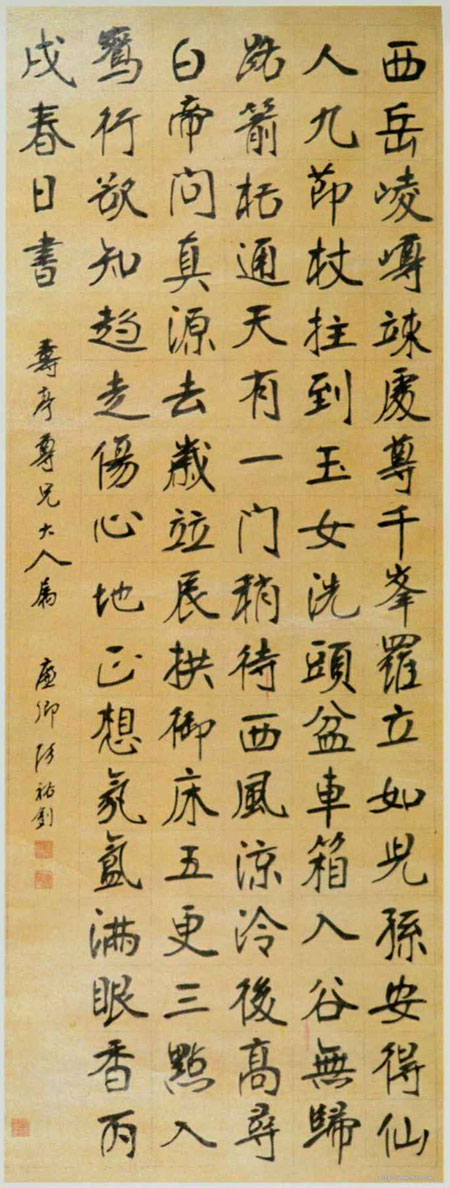 西岳崚嶒竦處尊千峯羅立如兒孫安得仙
人九節杖拄到玉女洗頭盆車箱入谷無歸
路箭栝通天有一門稍待西風涼冷後高尋
白帝問真源去歲茲辰拱御床五更三點入
鵷行欲知趨走傷心地正想氛氳滿眼香丙
戌春日書
尊兄大人屬
廉卿張裕釗